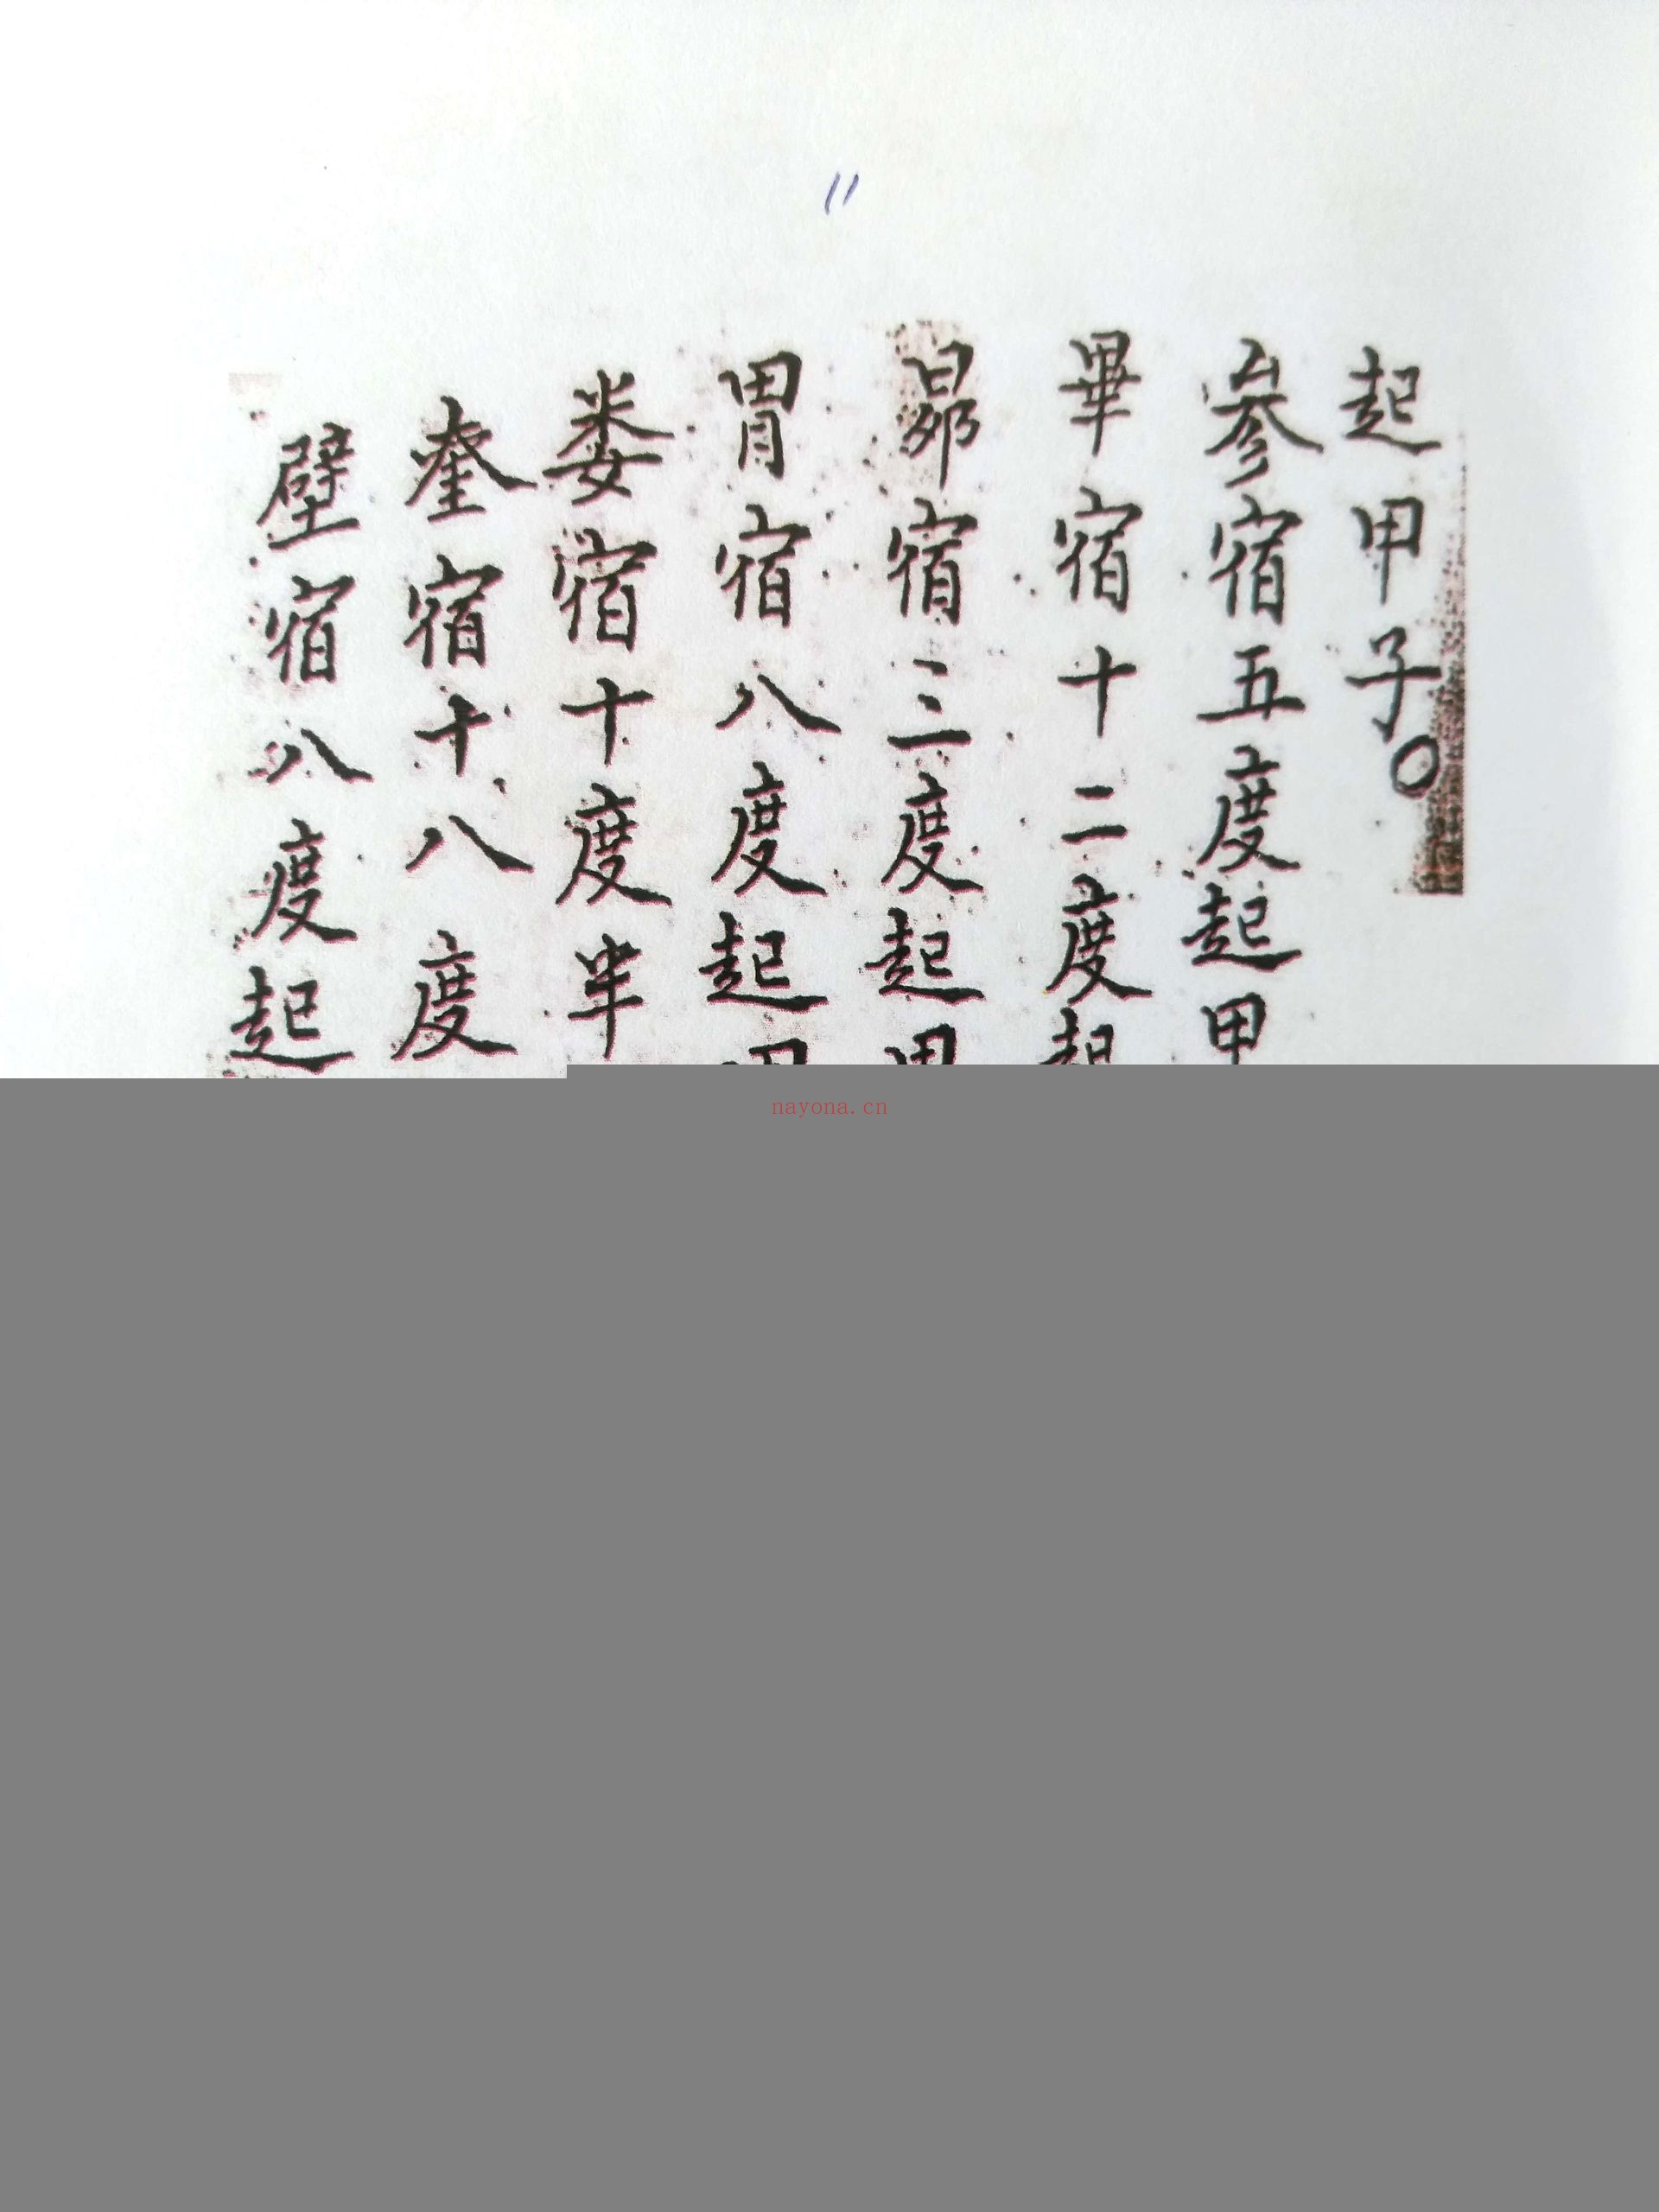 11
起甲子○
参宿五度起甲
畢宿十二度起
昴宿三度起甲
胃宿八度起
娄宿十度半
奎宿十八度
壁宿八度起
nayona.cn